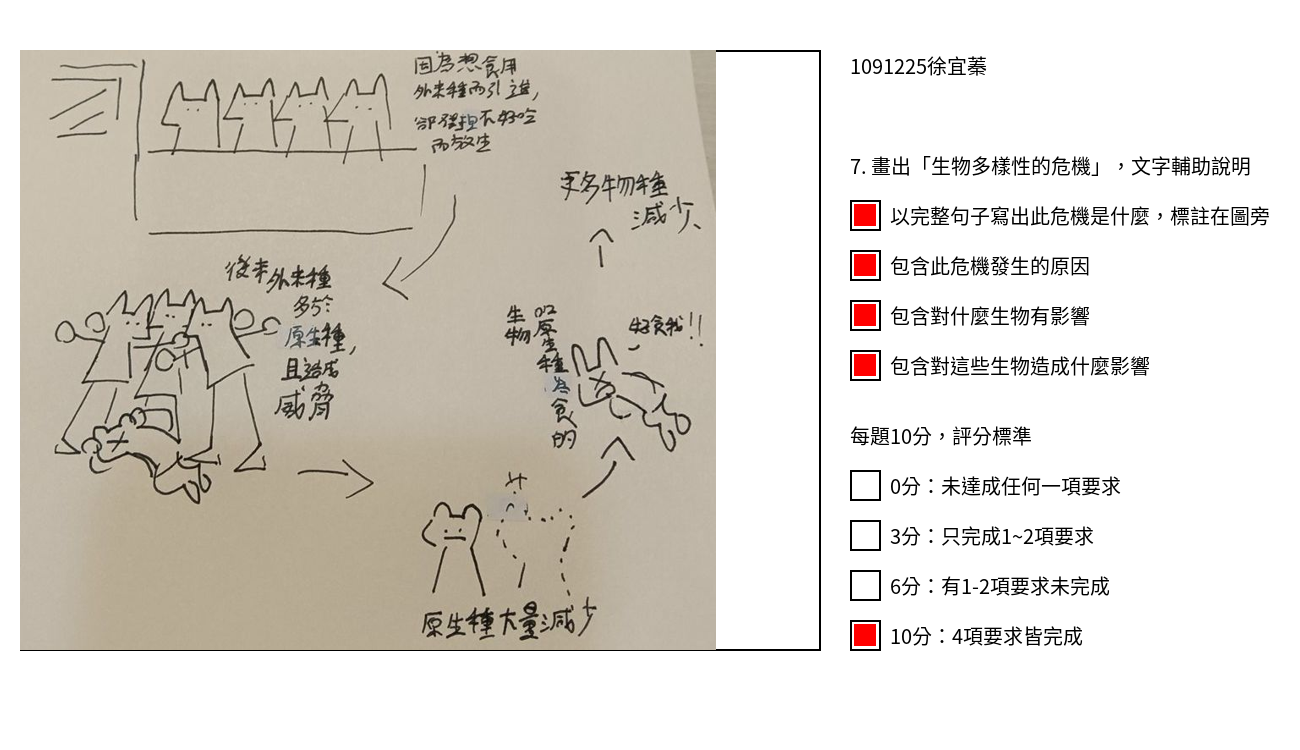 因為想食用
外來種而引進,
卻得知不好吃
而放生
後來外來種
多於
原生種,
且造成
威脅
原生種大量減少
以原生種為食的
生物
好餓!!
更多物種
減少
1091225徐宜蓁
7. 畫出「生物多樣性的危機」，文字輔助說明
以完整句子寫出此危機是什麼，標註在圖旁
包含此危機發生的原因
包含對什麼生物有影響
包含對這些生物造成什麼影響
每題10分，評分標準
0分：未達成任何一項要求
3分：只完成1~2項要求
6分：有1-2項要求未完成
10分：4項要求皆完成